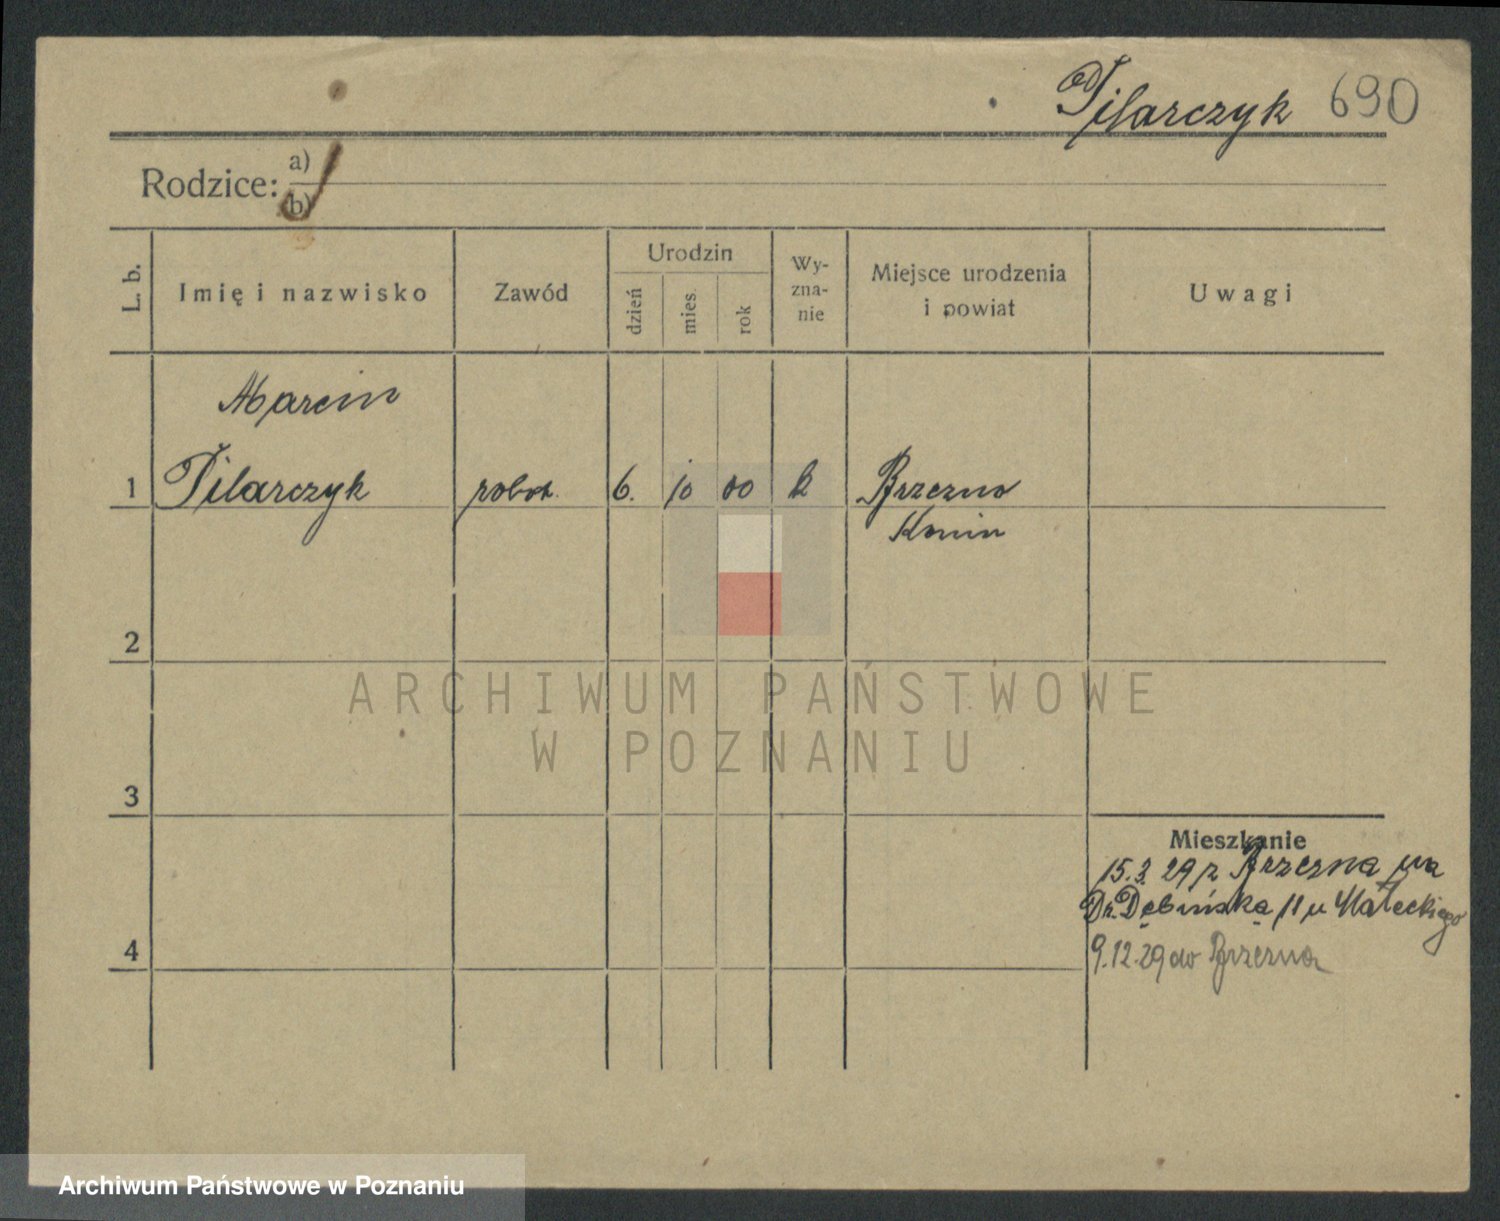 Pilarczyk 690
Rodzice: a)
b)
L. b.
Imię i nazwisko
Zawód
Urodzin
dzień
mies.
rok
Wy-
zna-
nie
Miejsce urodzenia
i powiat
Uwagi
Marcin
1 Pilarczyk robot. 6. 10 00 k Brzezno
Konin
2
ARCHIWUM PAŃSTWOWE
W POZNANIU
3
Mieszkanie
15.3.29 z Brzezna na
Dr. Dębińską 11 u Małeckiego
4
9.12.29 do Brzezna
Archiwum Państwowe w Poznaniu